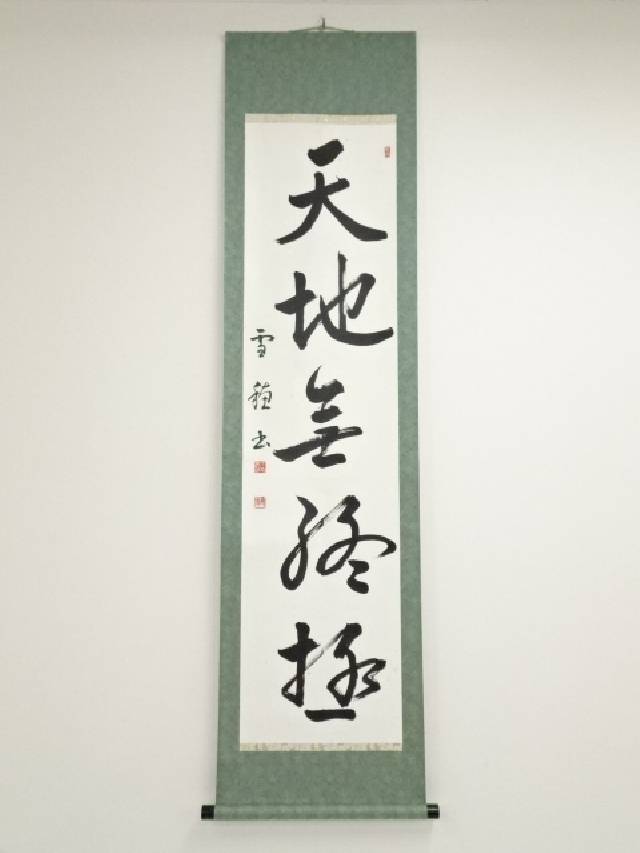 天地無終極
雪穂書